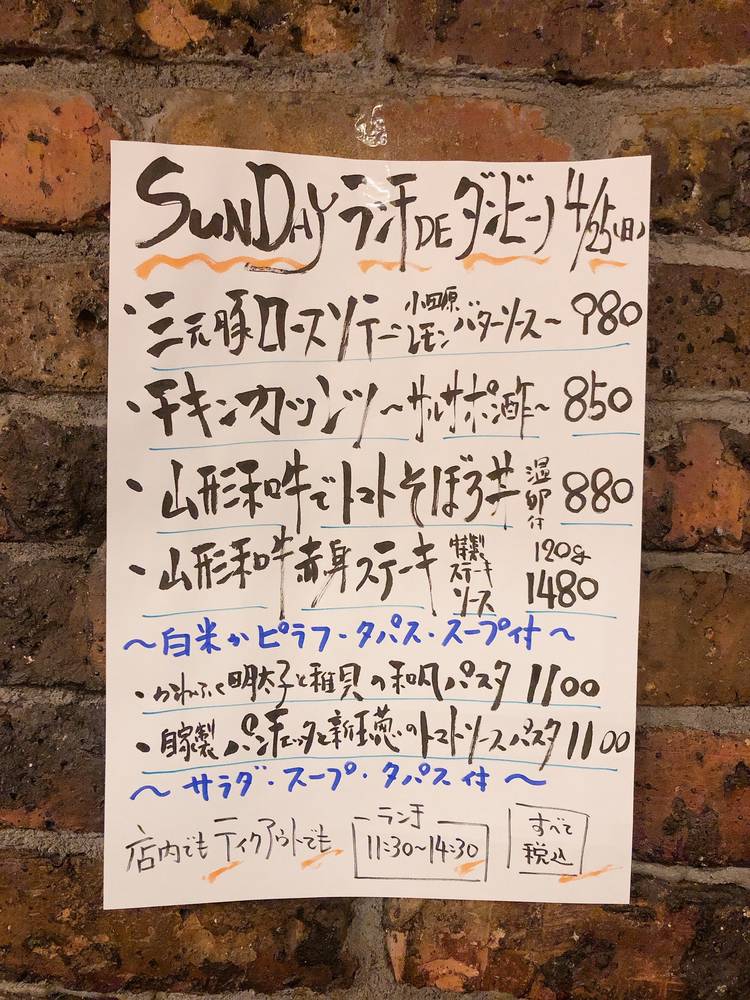 SUNDAY ランチ DE ダンビーノ 4/25(日)
・三元豚ロースソテー 小田原レモンバターソース〜 980
・チキンカッシンツ〜サルサポン酢〜 850
・山形和牛でトマトそぼろ丼 温卵付 880
・山形和牛赤身ステーキ 特製ステーキソース 120g 1480
〜白米かピラフ・タパス・スープ付〜
・かねふく明太子と稚貝の和風パスタ 1100
・自家製パンチェッタと新玉葱のトマトソースパスタ 1100
〜サラダ・スープ・タパス付〜
店内でもテイクアウトでも
ランチ
11:30〜14:30
すべて
税込